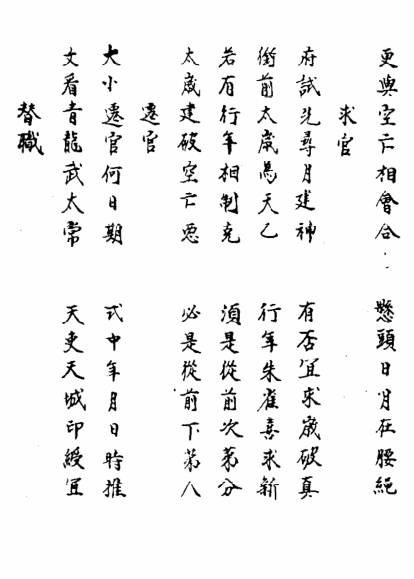 更與空亡相會合 懸頭日月在腰繩
求官
府試先尋月建神 有否宜求歲破真
衙前太歲為天乙 行年朱雀喜求新
若有行年相制克 須是從前次第分
太歲建破空亡惡 必是從前下第人
遷官
大小遷官何日期 式中年月日時推
文看青龍武太常 天吏天城印綬宜
替職